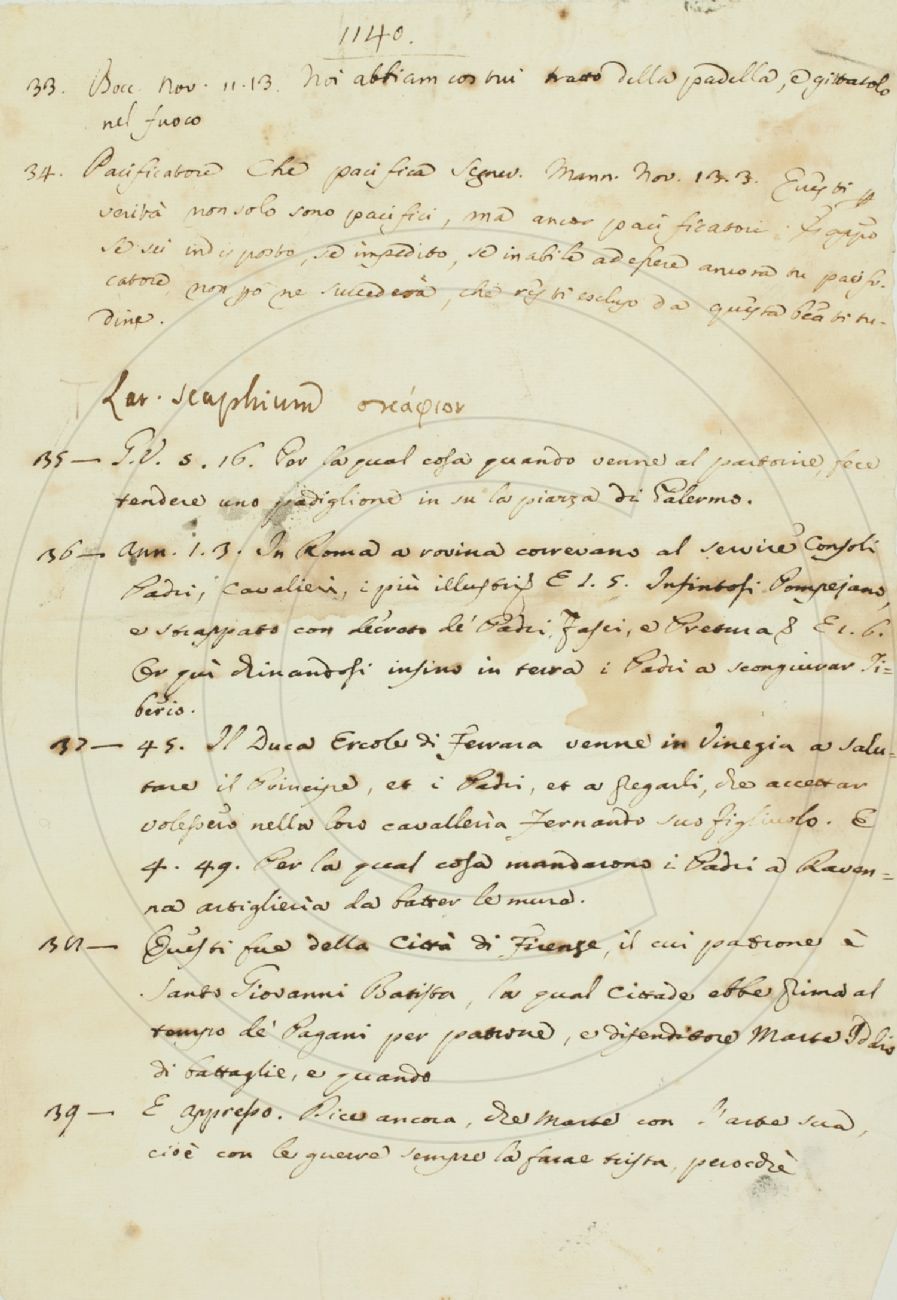 1140.
33. Bocc. Nov. 11.13. Noi abbiam costui tratto della padella, e gittatolo
nel fuoco
34. Pacificatore Che pacifica Segner. Mann. Nov. 13.3. Questi in
verità non solo sono pacifici, ma ancor pacificatori.
se sei indisposto, se impedito, se inabile ad essere ancora tu pacifi-
catore, non ne succederà, che resti escluso da questa beatitu-
dine.
Lat. scaphium σκάφιον
35 — G.V. 5.16. Per la qual cosa quando venne al partorire, fece
tendere uno padiglione in su la piazza di Palermo.
36 — Ann. 1.3. In Roma a rovina correvano al servire Consoli
Padri, Cavalieri, i più illustri E 1.5. Infintosi Pompejano,
e strappato con decreto de' Padri, Fasci, e Pretura E 1.6.
Or quì chinandosi insino in terra i Padri a scongiurar Ti=
berio.
37 — 45. Il Duca Ercole di Ferrara venne in Vinegia a salu=
tare il Principe, et i Padri, et a pregarli, che accettar
volessero nella loro cavalleria Fernando suo figliuolo. E
4. 49. Per la qual cosa mandarono i Padri a Raven=
na artiglieria da batter le mura.
38 — Questi fue della Città di Firenze, il cui patrone è
Santo Giovanni Batista, la qual Cittade ebbe prima al
tempo de' Pagani per patrone, e difenditore Marte Iddio
di battaglie, e quando
39 — E appresso. Dice ancora, che Marte con l'arte sua,
cioè con le guerre sempre la farae trista, perocchè